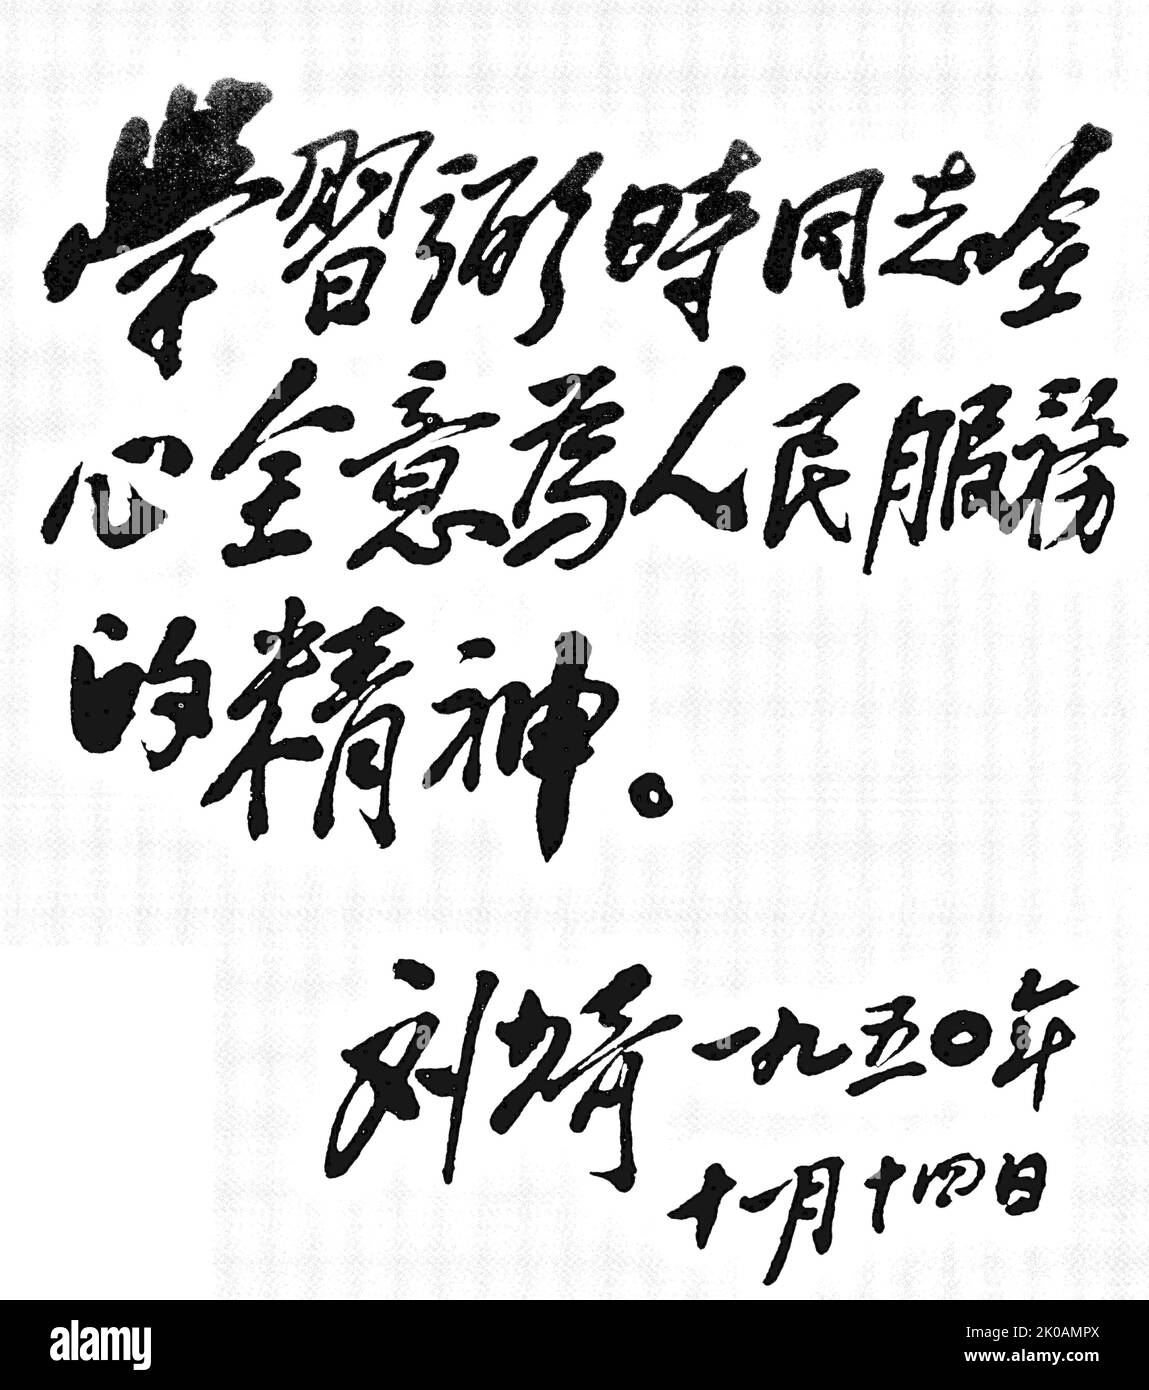 学習弼時同志全
心全意為人民服務
的精神。
刘少奇 一九五〇年
十一月十四日
alamy
Image ID: 2K0AMPX
www.alamy.com